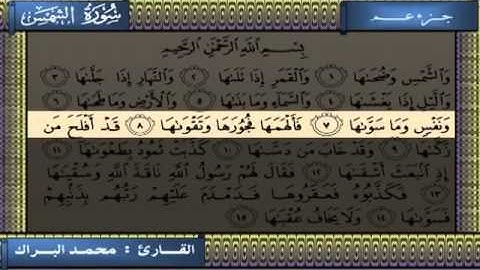 جزء عم
سورة الشمس
بِسْمِ ٱللَّهِ ٱلرَّحْمَٰنِ ٱلرَّحِيمِ
وَٱلشَّمْسِ وَضُحَىٰهَا ١ وَٱلْقَمَرِ إِذَا تَلَىٰهَا ٢ وَٱلنَّهَارِ إِذَا جَلَّىٰهَا ٣
وَٱلَّيْلِ إِذَا يَغْشَىٰهَا ٤ وَٱلسَّمَآءِ وَمَا بَنَىٰهَا ٥ وَٱلْأَرْضِ وَمَا طَحَىٰهَا ٦
وَنَفْسٍ وَمَا سَوَّىٰهَا ٧ فَأَلْهَمَهَا فُجُورَهَا وَتَقْوَىٰهَا ٨ قَدْ أَفْلَحَ مَن
زَكَّىٰهَا ٩ وَقَدْ خَابَ مَن دَسَّىٰهَا ١٠ كَذَّبَتْ ثَمُودُ بِطَغْوَىٰهَآ ١١
إِذِ ٱنۢبَعَثَ أَشْقَىٰهَا ١٢ فَقَالَ لَهُمْ رَسُولُ ٱللَّهِ نَاقَةَ ٱللَّهِ وَسُقْيَٰهَا
١٣ فَكَذَّبُوهُ فَعَقَرُوهَا فَدَمْدَمَ عَلَيْهِمْ رَبُّهُم بِذَنۢبِهِمْ
فَسَوَّىٰهَا ١٤ وَلَا يَخَافُ عُقْبَٰهَا ١٥
القارئ : محمد البراك